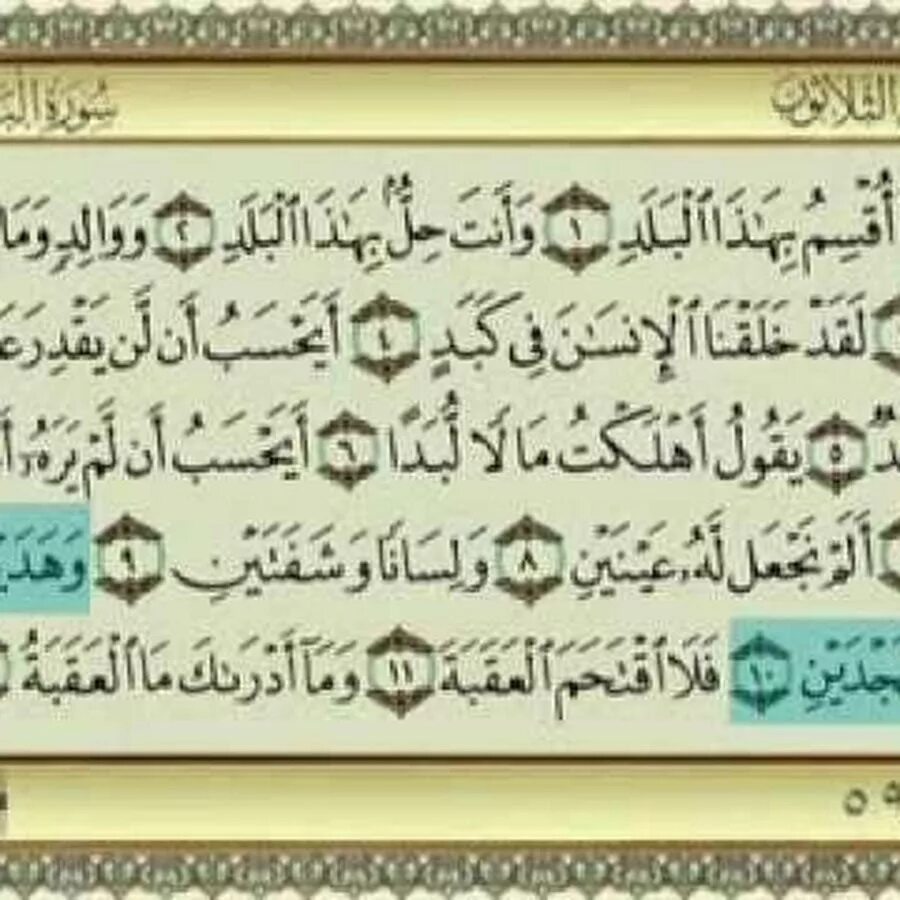 الثلاثون سورة
أُقْسِمُ بِهَٰذَا ٱلْبَلَدِ ١ وَأَنتَ حِلٌّۢ بِهَٰذَا ٱلْبَلَدِ ٢ وَوَالِدٍ وَمَا
لَقَدْ خَلَقْنَا ٱلْإِنسَٰنَ فِى كَبَدٍ ٤ أَيَحْسَبُ أَن لَّن يَقْدِرَ
٥ يَقُولُ أَهْلَكْتُ مَالًا لُّبَدًا ٦ أَيَحْسَبُ أَن لَّمْ يَرَهُۥٓ
أَلَمْ نَجْعَل لَّهُۥ عَيْنَيْنِ ٨ وَلِسَانًا وَشَفَتَيْنِ ٩
١٠ فَلَا ٱقْتَحَمَ ٱلْعَقَبَةَ ١١ وَمَآ أَدْرَىٰكَ مَا ٱلْعَقَبَةُ